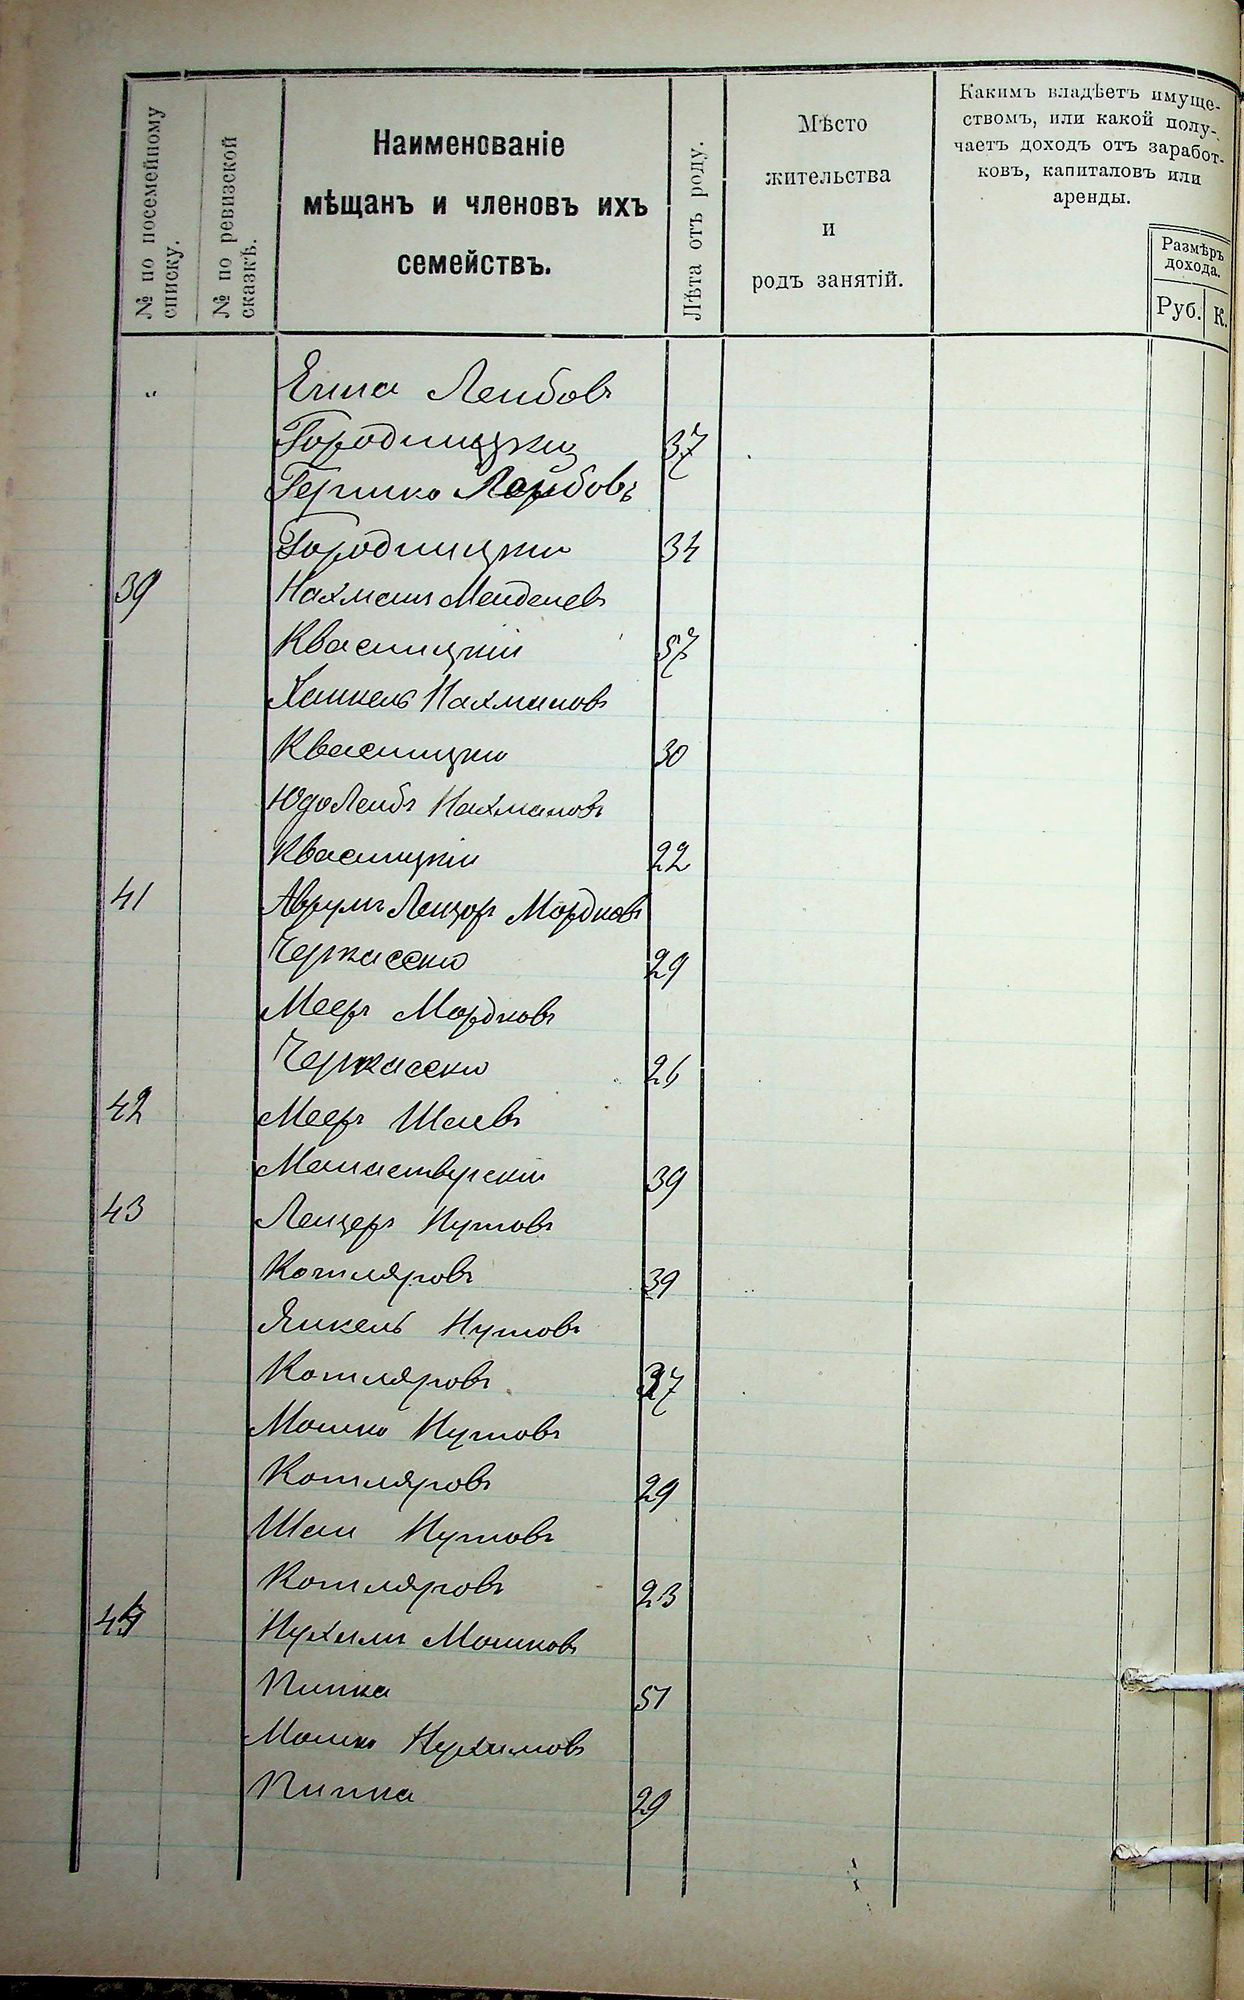 № по посемейному списку.
№ по ревизской сказкѣ.
Наименованіе
мѣщанъ и членовъ ихъ
семействъ.
Лѣта отъ роду.
Мѣсто
жительства
и
родъ занятій.
Какимъ владѣетъ имуще-
ствомъ, или какой полу-
чаетъ доходъ отъ заработ-
ковъ, капиталовъ или
аренды.
Размѣръ
дохода.
Руб. К.
" Лейбовъ
Городицкій 37
Гершко Лейбовъ
Городицкій 34
39 Нахманъ Менделевъ
Квасницкій 57
Хаикель Нахмановъ
Квасницкій 30
Юдолейбъ Нахмановъ
Квасницкій 22
41 Аврумъ Лейзоръ Мордковъ
Черкасскій 29
Мееръ Мордковъ
Черкасскій 26
42 Мееръ Шаевъ
Монастырскій 39
43 Лейзеръ Нутовъ
Котляровъ 39
Янкель Нутовъ
Котляровъ 37
Мошко Нутовъ
Котляровъ 29
Шая Нутовъ
Котляровъ 23
Нухимъ Мошковъ
Пинка 51
Мошко Нухимовъ
Пинка 29